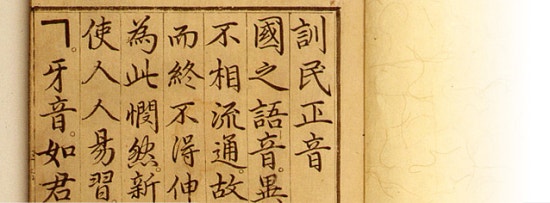 訓民正音
國之語音。異
不相流通。故
而終不得伸
為此憫然。新
使人人易習。
ㄱ。牙音。如君